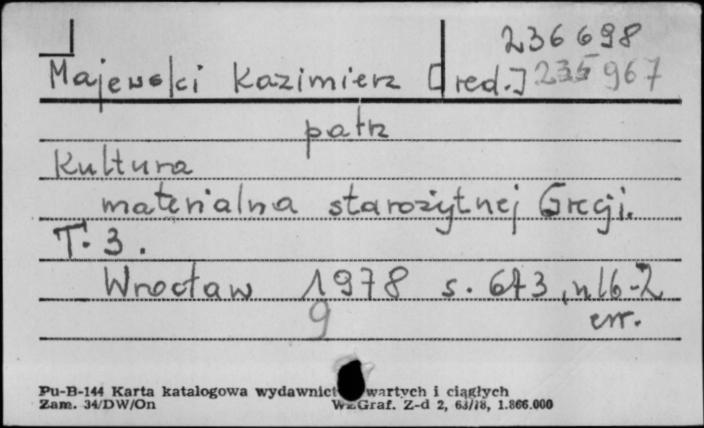 236698
Majewski Kazimierz [red.] 235967
patrz
Kultura
materialna starożytnej Grecji.
T. 3.
Wrocław 1978 s. 643, nlb-2
err.
9
Pu-B-144 Karta katalogowa wydawnict wartych i ciągłych
Zam. 34/DW/On WZGraf. Z-d 2, 63/78, 1.866.000